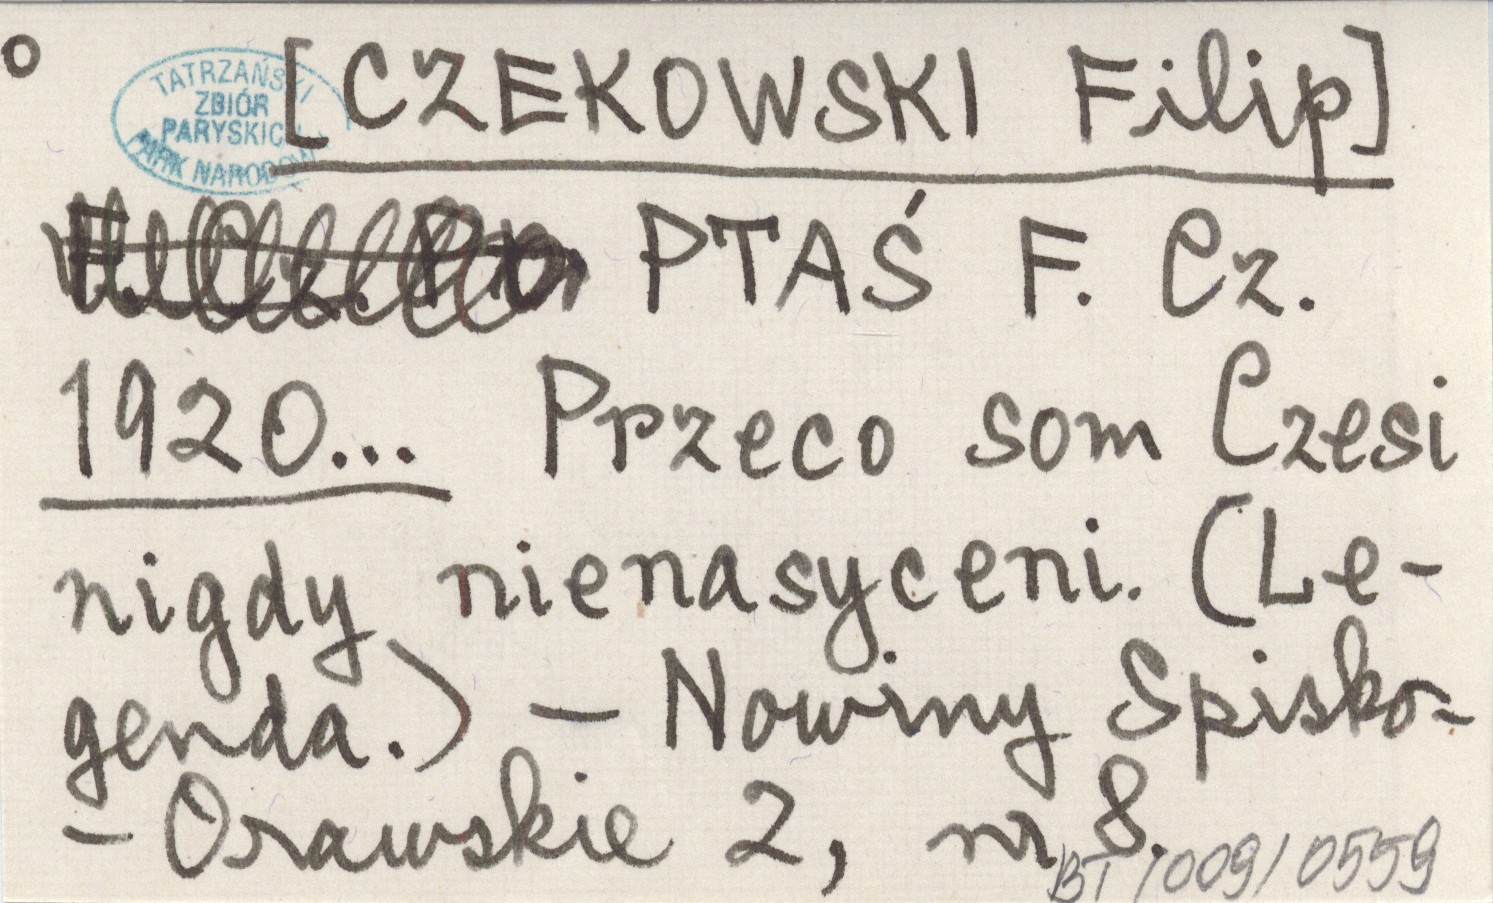 o [CZEKOWSKI Filip]
TATRZAŃSKI
ZBIÓR
PARYSKICH
PARK NARODOWY
PTAŚ F. Cz.
1920... Przeco som Czesi
nigdy nienasyceni. (Le-
genda.) — Nowiny Spisko-
- Orawskie 2, nr 8.
BT/009/0559